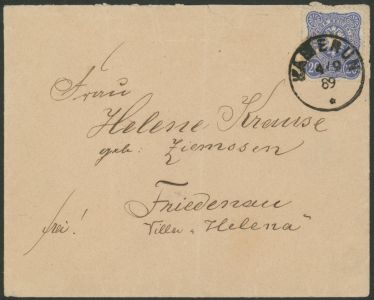 KAMERUN
4/9
89
*
20
Frau
Helene Krause
geb: Ziemssen
Friedenau
frei!
Villa "Helena"